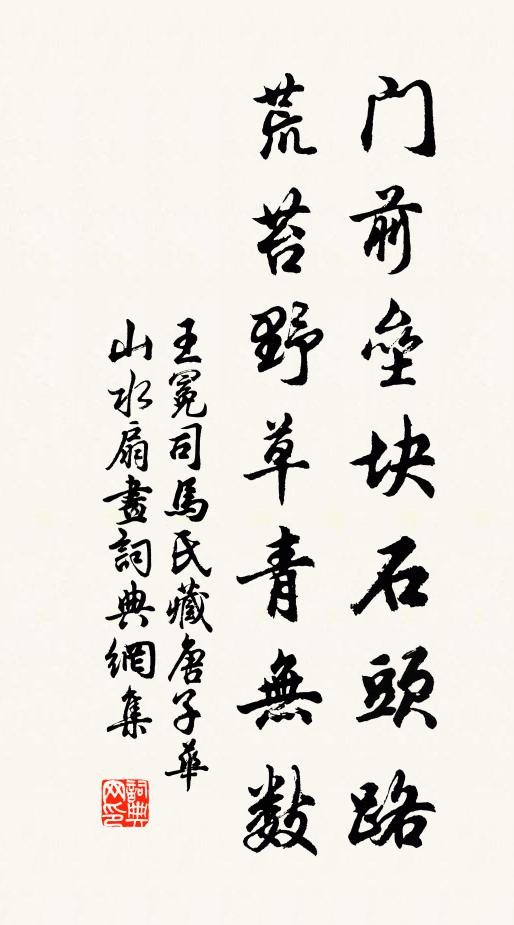 门前垒块石頭路
荒苔野草青無数
王冕司馬氏藏唐子華
山水扇畫詞典網集
詞典网印